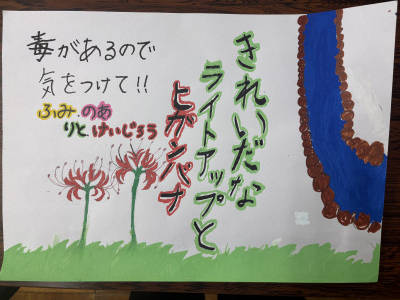 きれいだな
ライトアップと
ヒガンバナ
毒があるので
気をつけて!!
ふみ.のあ
りと.けいじろう